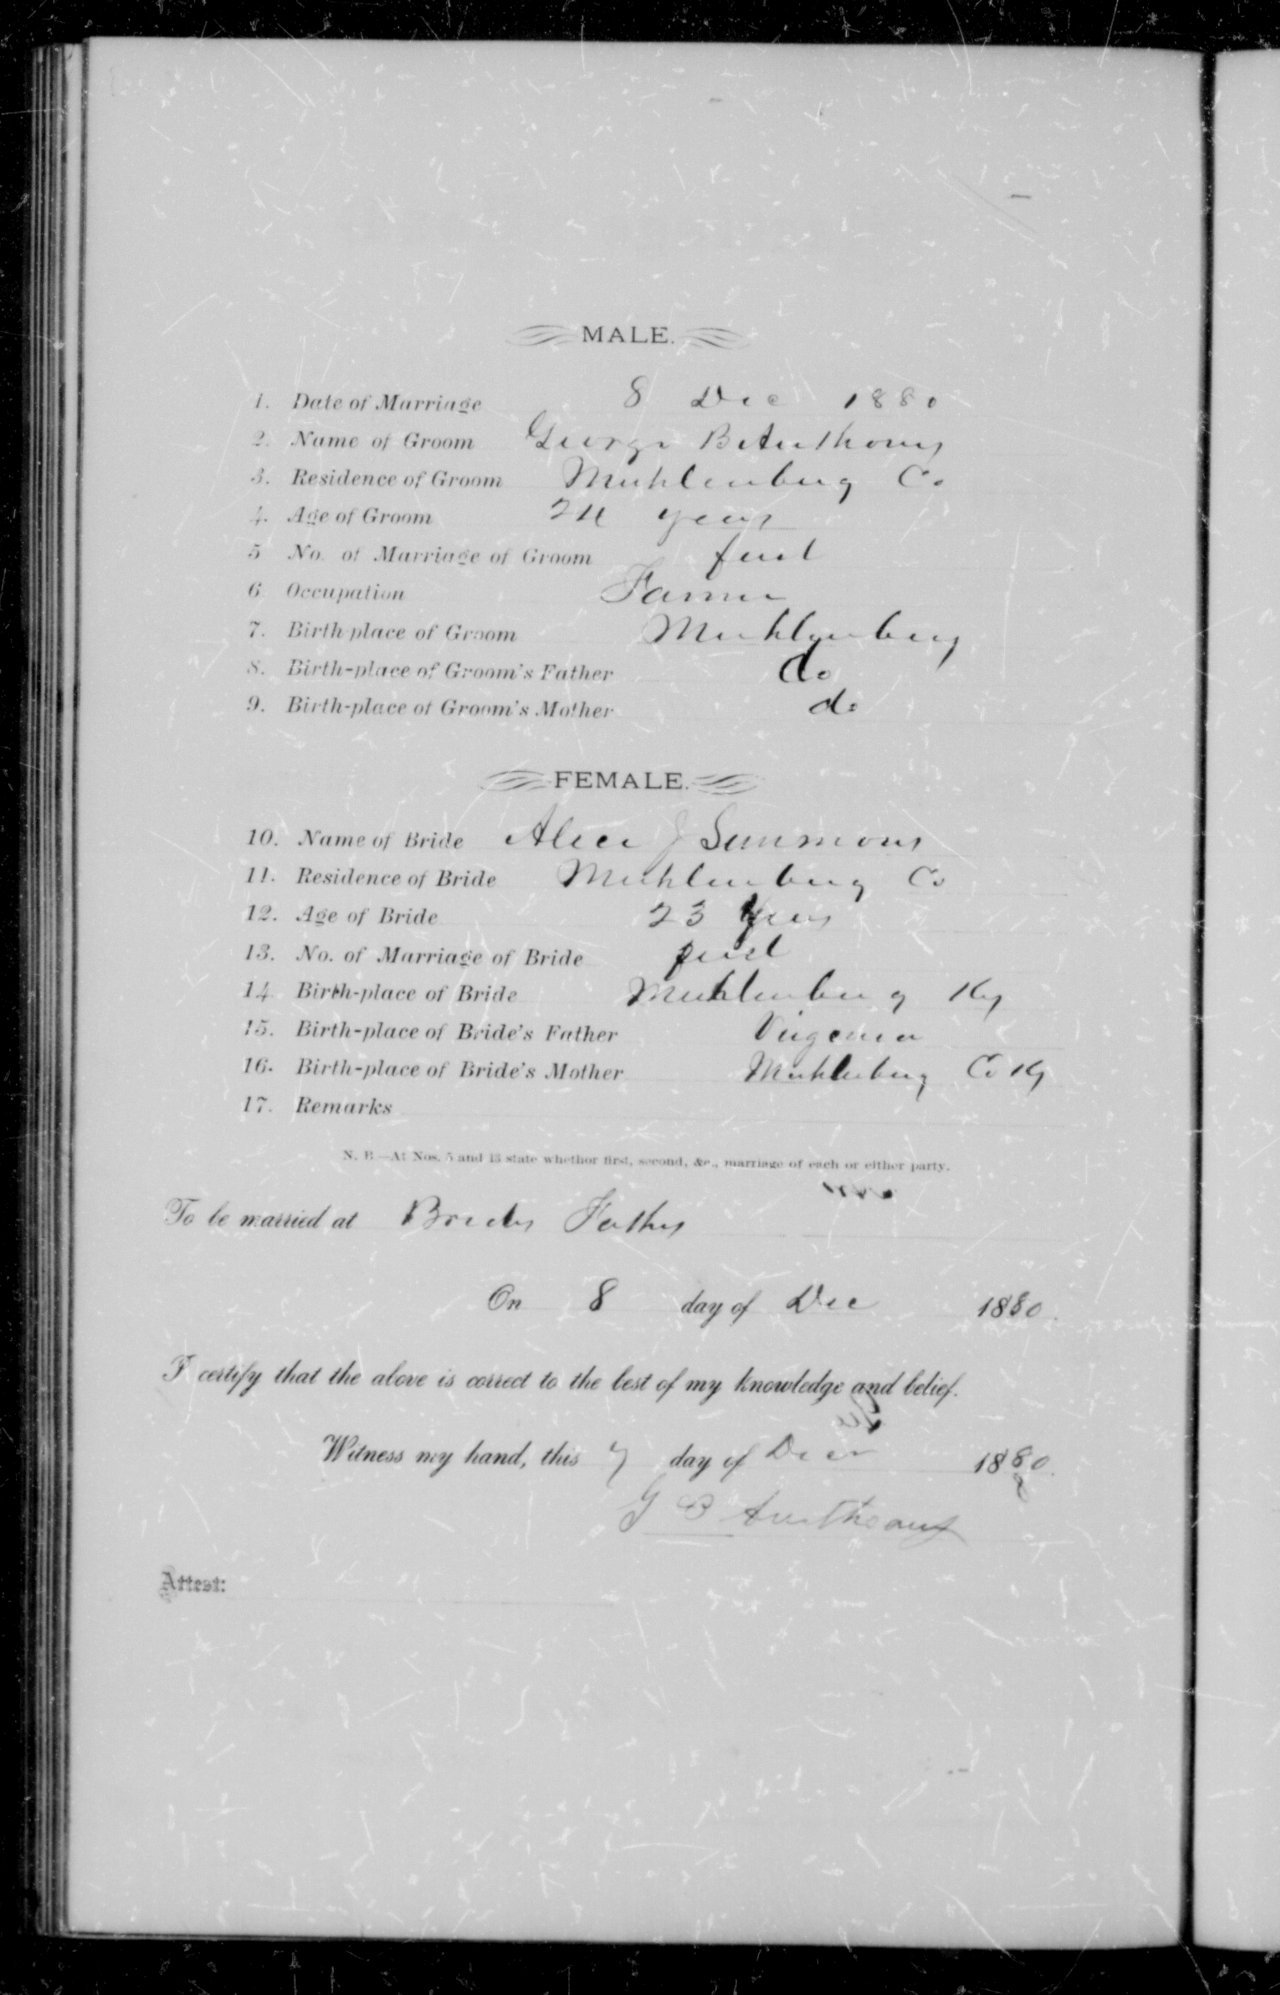 MALE.
1. Date of Marriage 8 Dec 1880
2. Name of Groom George B Anthony
3. Residence of Groom Muhlenburg Co
4. Age of Groom 24 years
5 No. of Marriage of Groom first
6 Occupation Farmer
7. Birth place of Groom Muhlenburg
8. Birth-place of Groom's Father do
9. Birth-place of Groom's Mother do
FEMALE.
10. Name of Bride Alice J Simmons
11. Residence of Bride Muhlenburg Co
12. Age of Bride 23 years
13. No. of Marriage of Bride first
14 Birth-place of Bride Muhlenburg Ky
15. Birth-place of Bride's Father Virginia
16. Birth-place of Bride's Mother Muhlenburg Co Ky
17. Remarks
N. B.—At Nos. 5 and 13 state whether first, second, &c., marriage of each or either party.
To be married at Brides Fathers
On 8 day of Dec 1880.
I certify that the above is correct to the best of my knowledge and belief.
Witness my hand, this 7 day of Dec 1880.
G B Anthony
Attest: